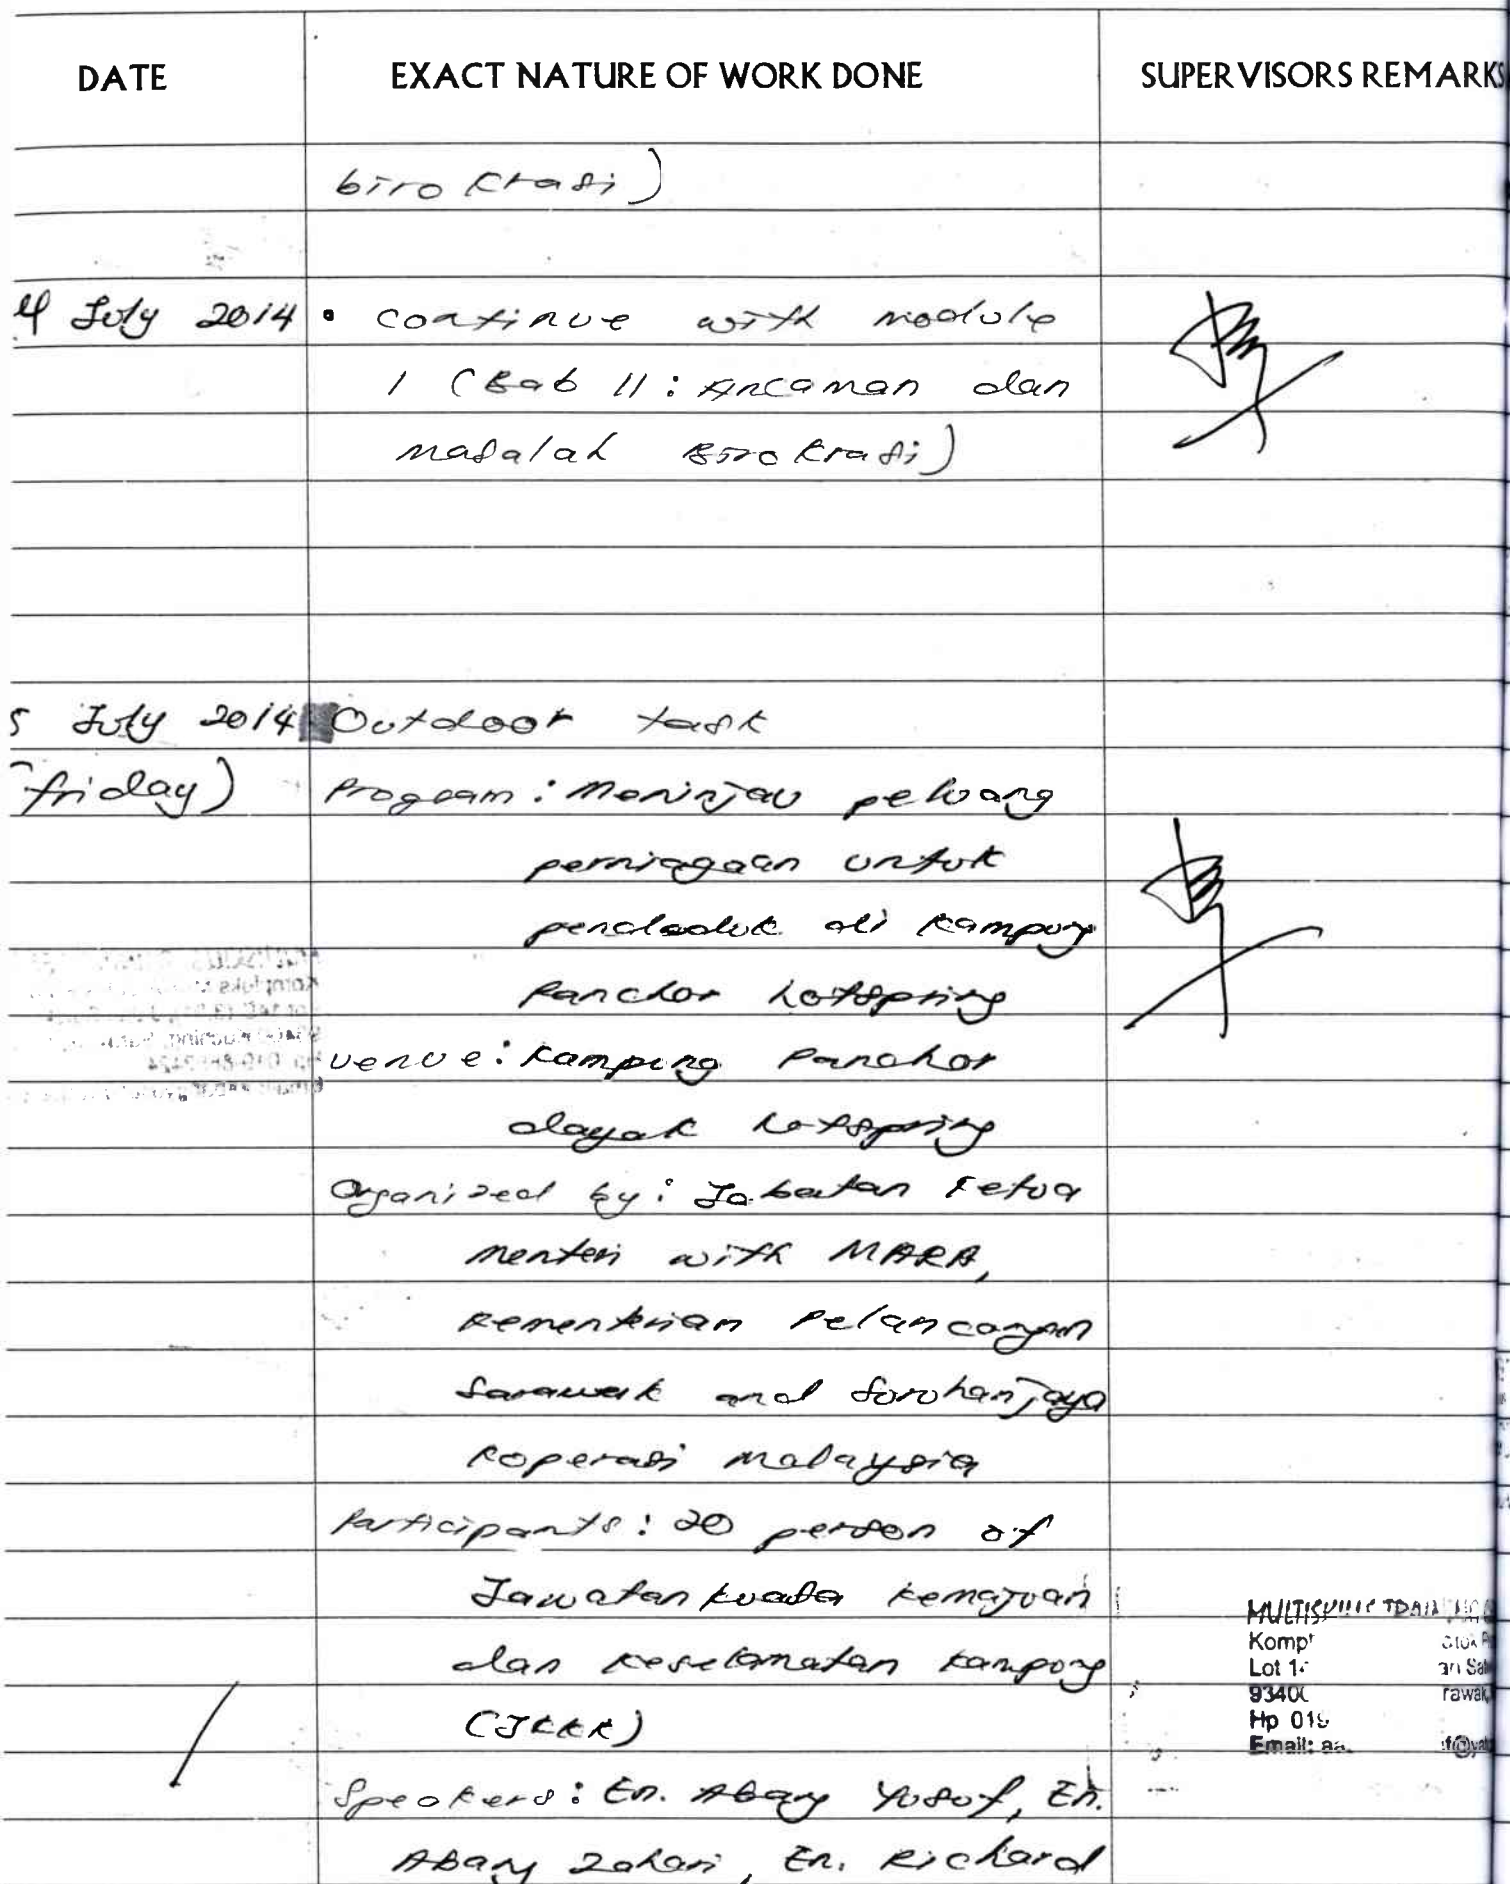 DATE EXACT NATURE OF WORK DONE SUPERVISORS REMARKS
birokrasi)
4 July 2014 • continue with module
1 (Bab 11: Ancaman dan
masalah Birokrasi)
5 July 2014 Outdoor task
friday) Program: Meninjau peluang
perniagaan untuk
penduduk di kampung
Panchor hotspring
venue: Kampung Panchor
dayak hotspring
Organized by: Jabatan Ketua
menteri with MARA,
Kementerian Pelancongan
Sarawak and Suruhanjaya
Koperasi Malaysia
Participants: 20 person of
Jawatankuasa Kemajuan
dan Keselamatan Kampung
(JKKK)
Speakers: En. Abang Yusof, En.
Abang Zohari, En. Richard
Lot
Hp
Email: